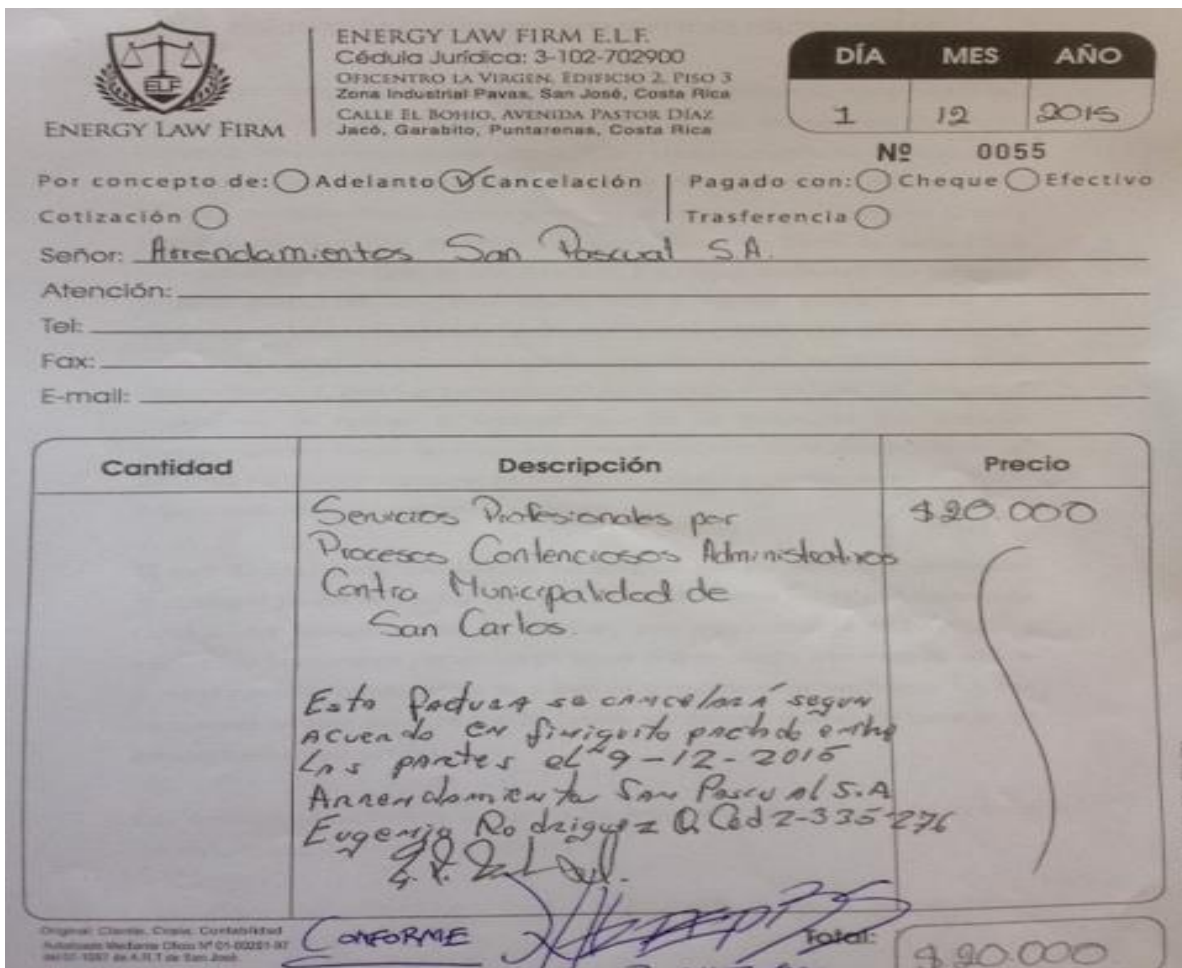 ENERGY LAW FIRM E.L.F.
Cédula Jurídica: 3-102-702900
OFICENTRO LA VIRGEN, EDIFICIO 2, PISO 3
Zona Industrial Pavas, San José, Costa Rica
CALLE EL BOHIO, AVENIDA PASTOR DÍAZ
Jacó, Garabito, Puntarenas, Costa Rica
ELF
ENERGY LAW FIRM
DÍA MES AÑO
1 12 2015
Nº 0055
Por concepto de: Adelanto Cancelación Pagado con: Cheque Efectivo
Cotización Trasferencia
Señor: Arrendamientos San Pascual S.A.
Atención:
Tel:
Fax:
E-mail:
Cantidad Descripción Precio
Servicios Profesionales por $20.000
Procesos Contenciosos Administrativos
Contra Municipalidad de
San Carlos.
Esta factura se cancelará segun
acuerdo en finiquito pactado entre
Las partes el 9-12-2015
Arrendamiento San Pascual S.A
Eugenia Rodriguez Q. Ced 2-335-276
CONFORME
Total: $20.000
Original: Cliente, Copia: Contabilidad